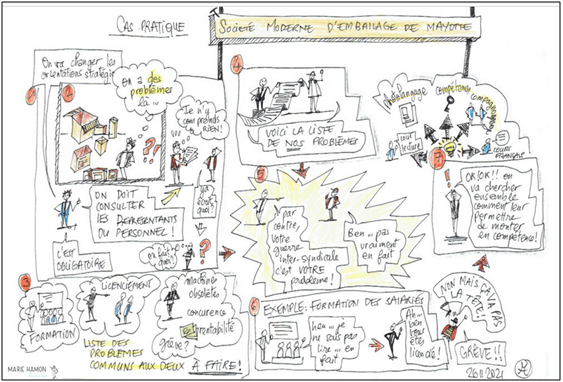 CAS PRATIQUE
SOCIETE MODERNE D'EMBALLAGE DE MAYOTTE
On va changer les
orientations stratégi
1
On a des
problèmes
là...
Je n'y
comprends
RIEN!
ON DOIT
CONSULTER
LES REPRESENTANTS
DU PERSONNEL!
C'EST
OBLIGATOIRE
on fait quoi?
3
FORMATION
LICENCIEMENT
machines
obsolètes
concurence
rentabilité
grève?
LISTE DES
PROBLEMES
COMMUNS AUX DEUX À FAIRE!
4
VOICI LA LISTE
DE NOS PROBLÈMES
5
par
contre,
votre
guerre
inter-syndicale
c'est VOTRE
problème!
Ben...pas
vraiment
en fait
6
EXEMPLE: FORMATION DES SALARIÉS
heu... je
ne sais pas
lire... en
fait
Ah...
bien
vous
êtes
licencié!
NON MAIS ÇA VA PAS
LA TÊTE!
GRÈVE!!
7
compétence
cour
lecture
cours
français
OK!OK!! on
va chercher
ensemble
comment leur
permettre
de monter
en compétence!
MARIE HAMON
26 11 2021